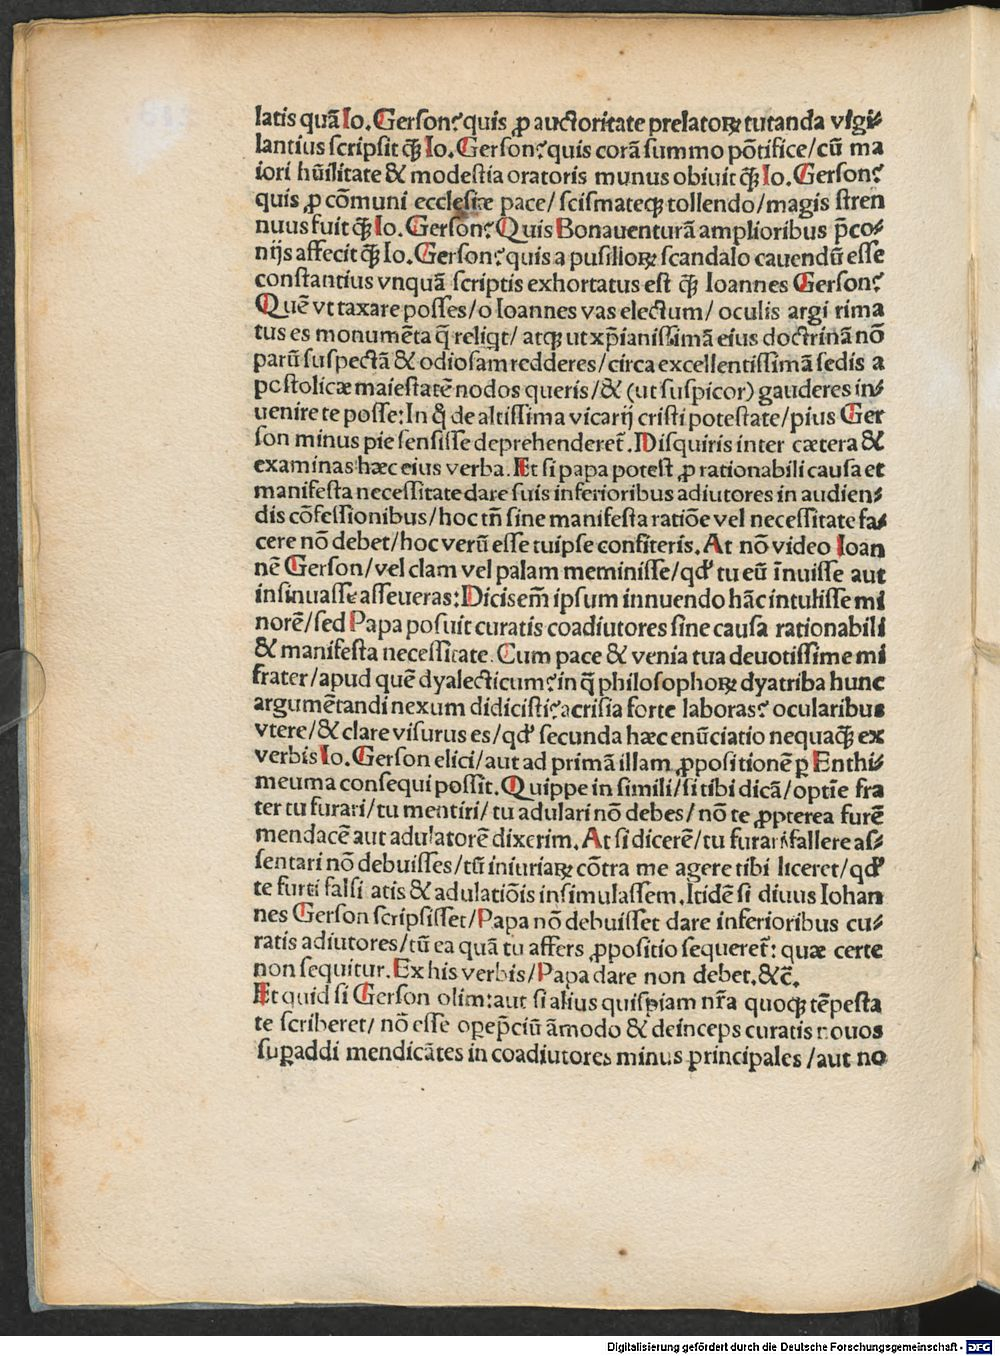 latis quā Io. Gerson? quis ꝓ auctoritate prelatoꝝ tutanda vigi⸗
lantius scripsit qꝫ̄ Io. Gerson? quis corā summo pōtifice/cū ma
iori hūilitate & modestia oratoris munus obiuit qꝫ̄ Io. Gerson?
quis ꝓ cōmuni ecclesiæ pace/ scismateqꝫ tollendo/magis stren
nuus fuit qꝫ̄ Io. Gerson? Quis Bonauenturā amplioribus p̄co⸗
nijs affecit qꝫ̄ Io. Gerson? quis a pusillioꝝ scandalo cauendū esse
constantius vnquā scriptis exhortatus est qꝫ̄ Ioannes Gerson?
Quē vt taxare posses/o Ioannes vas electum/ oculis argi rima
tus es monumēta q̄ reliqt/ atqꝫ ut xp̄ianissimā eius doctrinā nō
parū suspectā & odiosam redderes/circa excellentissimā sedis a
postolicæ maiestatē nodos queris/& (ut suspicor) gauderes in⸗
uenire te posse: In q̄ de altissima vicarij cristi potestate/pius Ger
son minus pie sensisse deprehenderet̄. Disquiris inter cætera &
examinas hæc eius verba. Et si papa potest ꝓ rationabili causa et
manifesta necessitate dare suis inferioribus adiutores in audien⸗
dis cōfessionibus/hoc tn̄ sine manifesta ratiōe vel necessitate fa⸗
cere nō debet/hoc verū esse tuipse confiteris. At nō video Ioan
nē Gerson/vel clam vel palam meminisse/qď tu eū īnuisse aut
insinuasse asseueras: Dicis em̄ ipsum innuendo hāc intulisse mi
norē/sed Papa posuit curatis coadiutores sine causa rationabili
& manifesta necessitate. Cum pace & venia tua deuotissime mi
frater/apud quē dyalecticum? in q̄ philosophoꝝ dyatriba hunc
argumētandi nexum didicisti? acrisia forte laboras? ocularibus
vtere/& clare visurus es/qď secunda hæc enūciatio nequaqꝫ̄ ex
verbis Io. Gerson elici/aut ad primā illam ꝓpositionē ꝑ Enthi⸗
meuma consequi possit. Quippe in simili/si tibi dicā/optīe fra
ter tu furari/tu mentiri/tu adulari nō debes/nō te ꝓpterea furē
mendacē aut adulatorē dixerim. At si dicerē/tu furari fallere as⸗
sentari nō debuisses/tū iniuriaꝝ cōtra me agere tibi liceret/qď
te furti falsi atis & adulatiōis insimulassem. Itidē si diuus Iohan
nes Gerson scripsisset/Papa nō debuisset dare inferioribus cu⸗
ratis adiutores/tū ea quā tu affers ꝓpositio sequeret̄: quæ certe
non sequitur. Ex his verbis/Papa dare non debet.&c̄.
Et quid si Gerson olim: aut si alius quispiam nr̄a quoqꝫ tēpesta
te scriberet/ nō esse oꝑep̄ciū āmodo & deinceps curatis nouos
suꝑaddi mendicātes in coadiutores minus principales/aut no
Digitalisierung gefördert durch die Deutsche Forschungsgemeinschaft - DFG